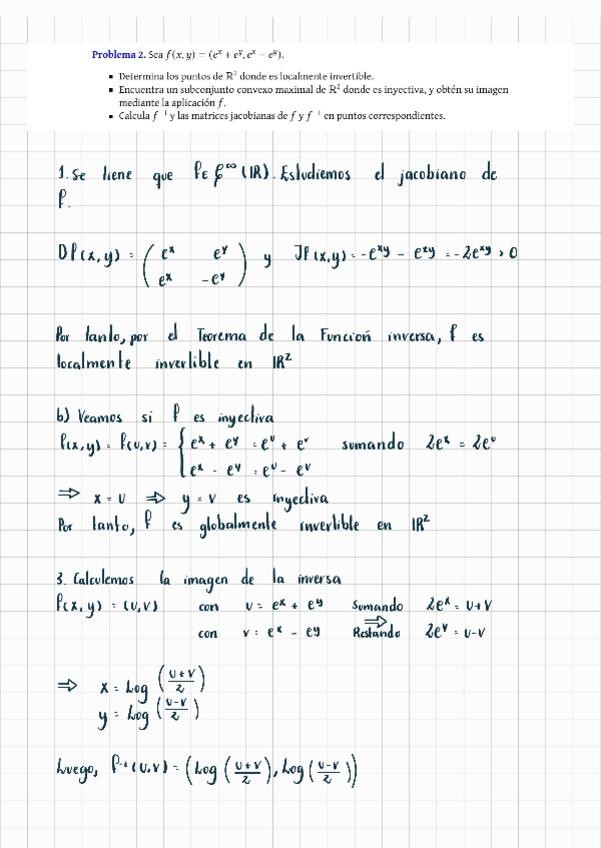 Problema 2. Sea f(x, y) = (eˣ + eʸ, eˣ − eʸ).
▪ Determina los puntos de ℝ² donde es localmente invertible.
▪ Encuentra un subconjunto convexo maximal de ℝ² donde es inyectiva, y obtén su imagen
mediante la aplicación f.
▪ Calcula f⁻¹ y las matrices jacobianas de f y f⁻¹ en puntos correspondientes.
1. Se tiene que f ∈ ζ^∞ (ℝ). Estudiemos el jacobiano de
f.
Df(x,y) = ( eˣ eʸ ; eˣ -eʸ ) y Jf(x,y) = -e^xy - e^xy = -2e^xy > 0
Por tanto, por el Teorema de la Función inversa, f es
localmente invertible en ℝ²
b) Veamos si f es inyectiva
f(x,y) = f(u,v) = { eˣ + eʸ = eᵘ + eᵛ sumando 2eˣ = 2eᵘ
eˣ - eʸ = eᵘ - eᵛ
⇒ x = u ⇒ y = v es inyectiva
Por tanto, f es globalmente invertible en ℝ²
3. Calculemos la imagen de la inversa
f(x,y) = (u,v) con u = eˣ + eʸ Sumando 2eˣ = u+v
con v = eˣ - eʸ ⇒ Restando 2eʸ = u-v
⇒ x = Log (u+v/2)
y = Log (u-v/2)
Luego, f⁻¹(u,v) = (Log (u+v/2), Log (u-v/2))